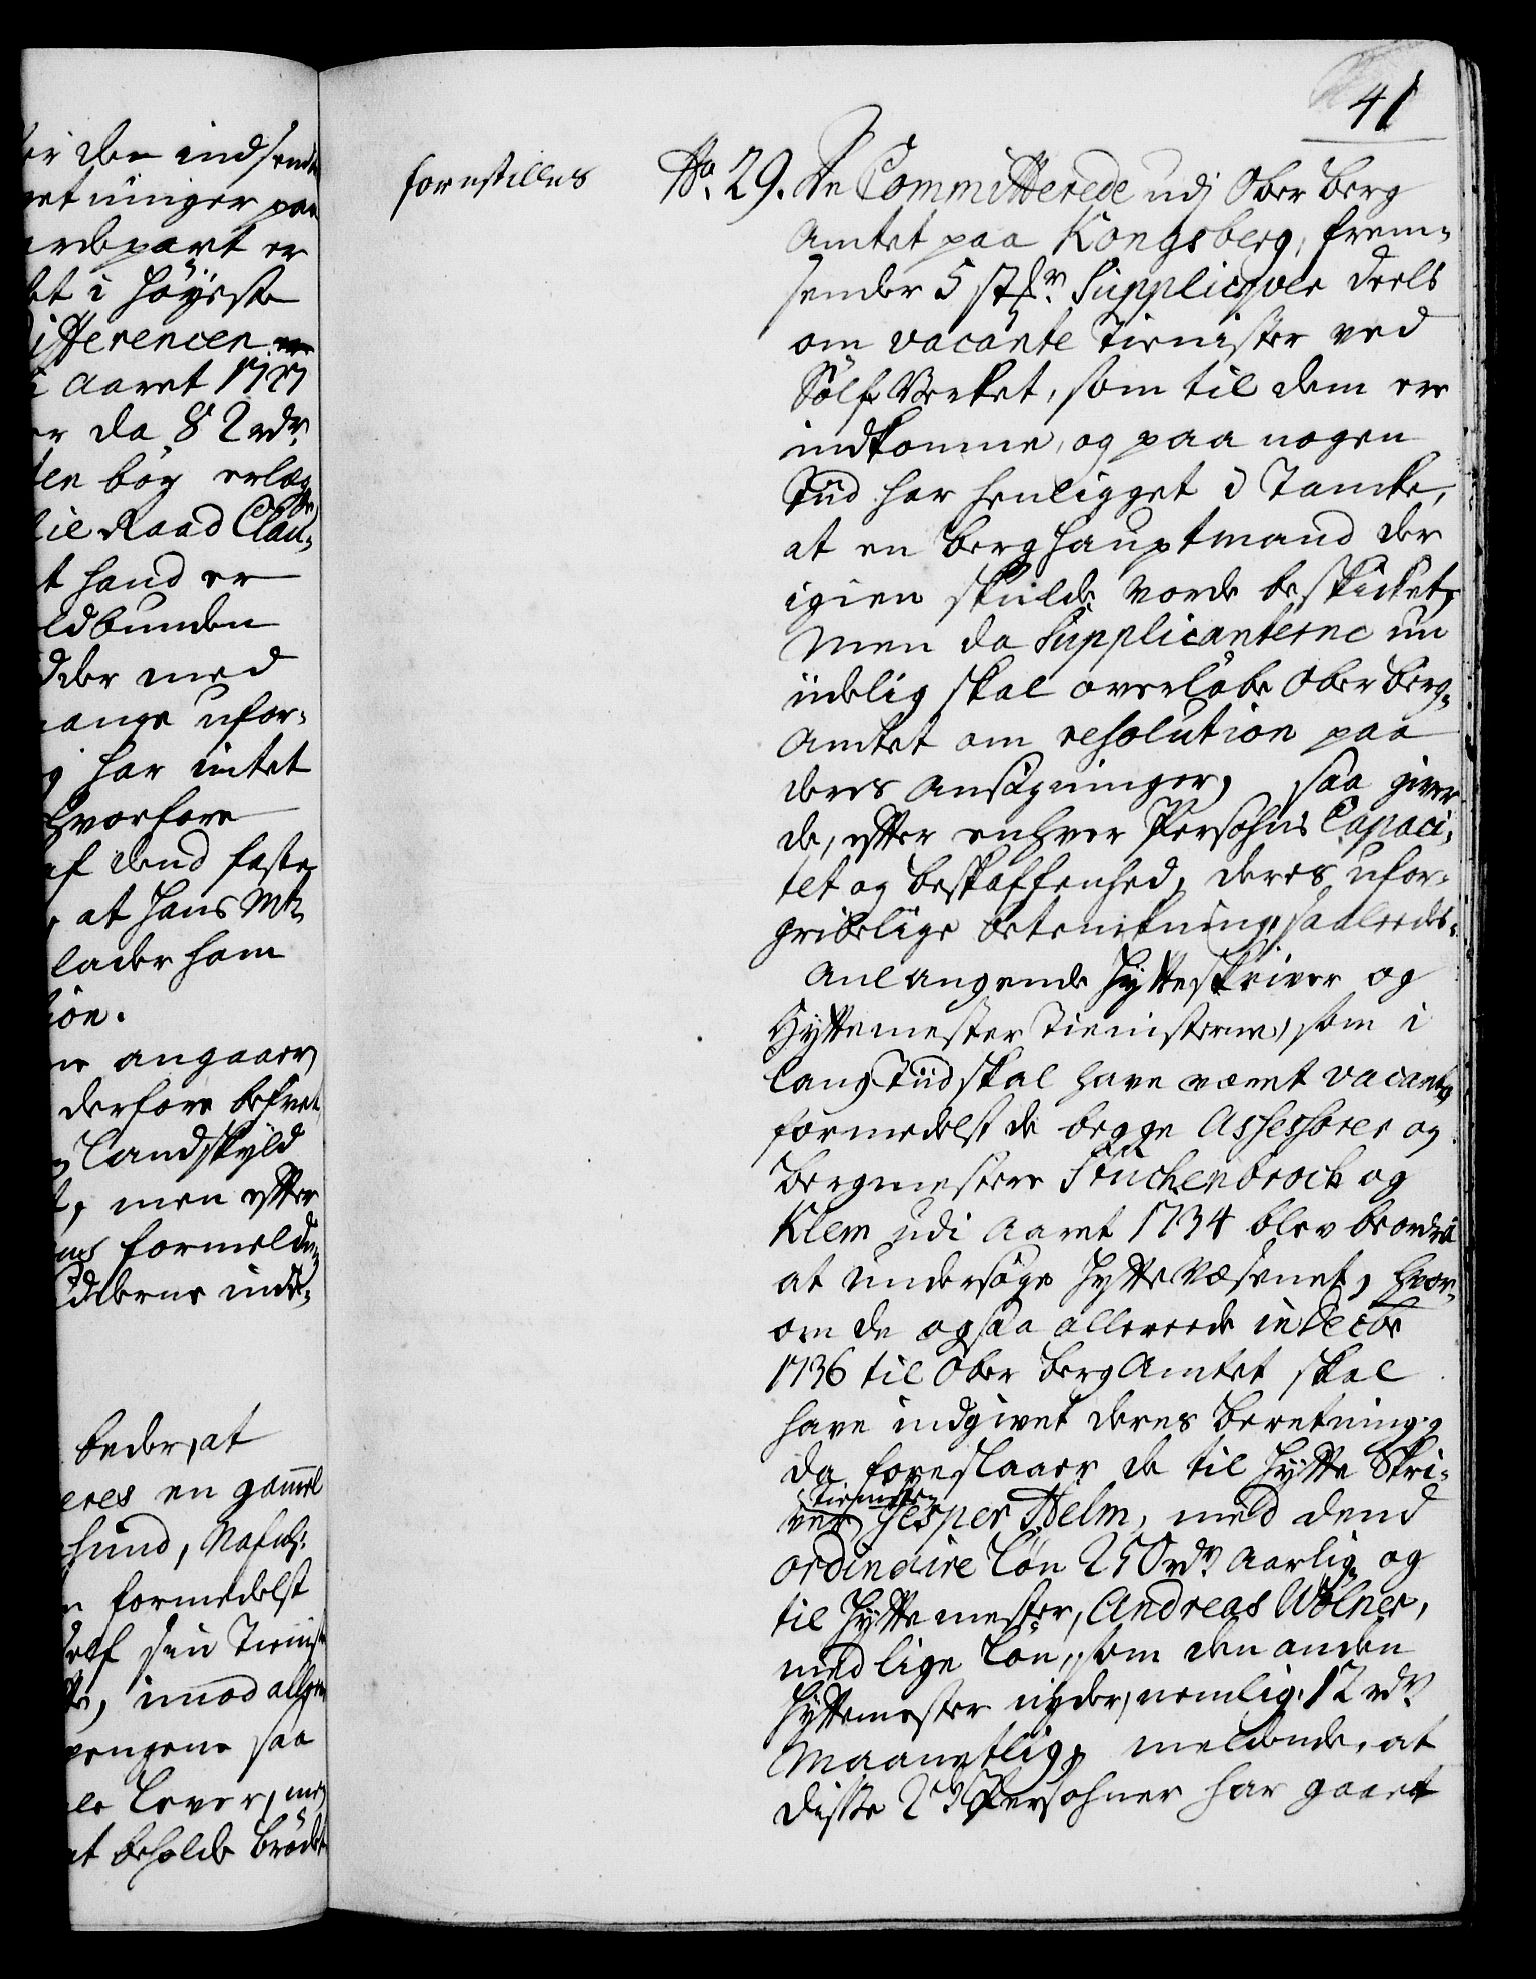 41
forestilles
No. 29. De Committerede udj Ober Berg
Amtet paa Kongsberg, frem-
sender 5 st. Suppliqver deels
om vacante Tienister ved
Sølf Verket, som til dem ere
indkomne, og paa nogen
Tiid har henligget i Tancke,
at en Berghauptmand der
igien skulde vorde beskicket,
Men da Supplicanterne nu
iidelig skal overløbe Ober Berg-
Amtet om resolution paa
deres Ansøgninger, saa giver
de, efter enhver Persohns Capaci-
tet og beskaffenhed, deres ufor-
gribelige betenkning, saaleedes.
Anlangende Hytteskriver og
Hyttemester Tienisterne, som i
lang Tiid skal have været vacante
formedelst de begge Assessorer og
Bergmestere Stuckenbrock og
Klem udi Aaret 1734 blev beordret
at undersøge Hytte Væsenet, hvor-
om de ogsaa allereede in Decbr
1736 til Ober BergAmtet skal
have indgivet deres Beretning,
da foreslaaer de til Hytte Skri-
Tienisten
ver Jesper Helm, med dend
ordinaire Løn 250 rdr Aarlig, og
til Hyttemester, Andreas Wølner,
med lige Løn, som den anden
Hyttemester nyder, nemlig 12 rdr
Maanetlig, meldende, at
disse 2de Persohner har gaaet
er den indsendte
retninger paa
et i Høyeste
i Aaret 1727
er da 82 rdr
til Raad Clau-
t hand er
ldbunden
der med
ange ufor-
har intet
hvorfore
af dend faste
at Hans Mt
lader ham
ion.
angaaer
derfore befriet
Landskyld
t, men efter
formeld
beder, at
eres en gammel
hund, Nafnl:
formedelst
self sin Tieniste
imod all
pengene saa
lever,
at beholde brødet